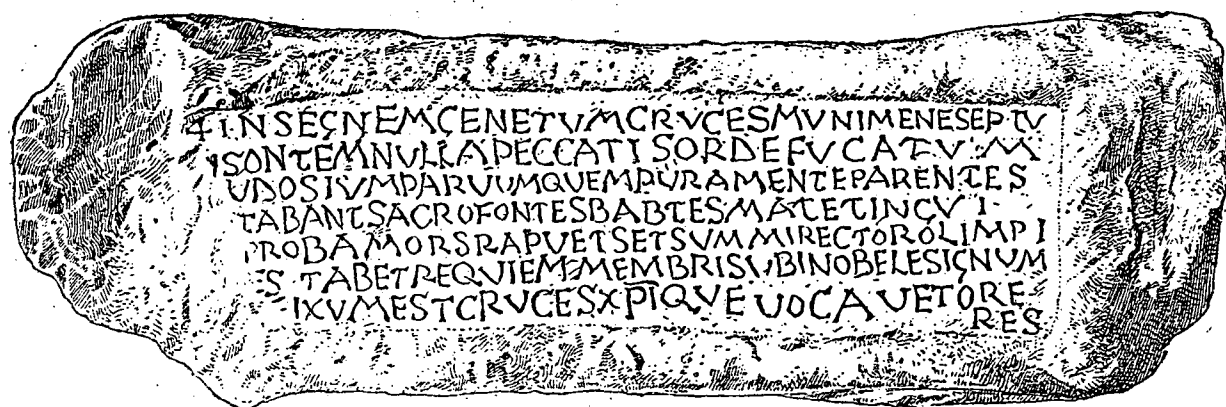 +INSEGNEMGENETVMCRVCESMVNIMENESEPTV
SONTEMNULLAPECCATISORDEFUCATVM
UDOSIVMPARVUMQUEMPURAMENTEPARENTES
TABANTSACROFONTESBABTESMATETINGVI
PROBAMORSRAPUETSETSVMMIRECTOROLIMPI
STABETREQVIEMMEMBRISVBINOBELESIGNVM
IXVMESTCRVCESXPIQVEUOCAVETORE
RES